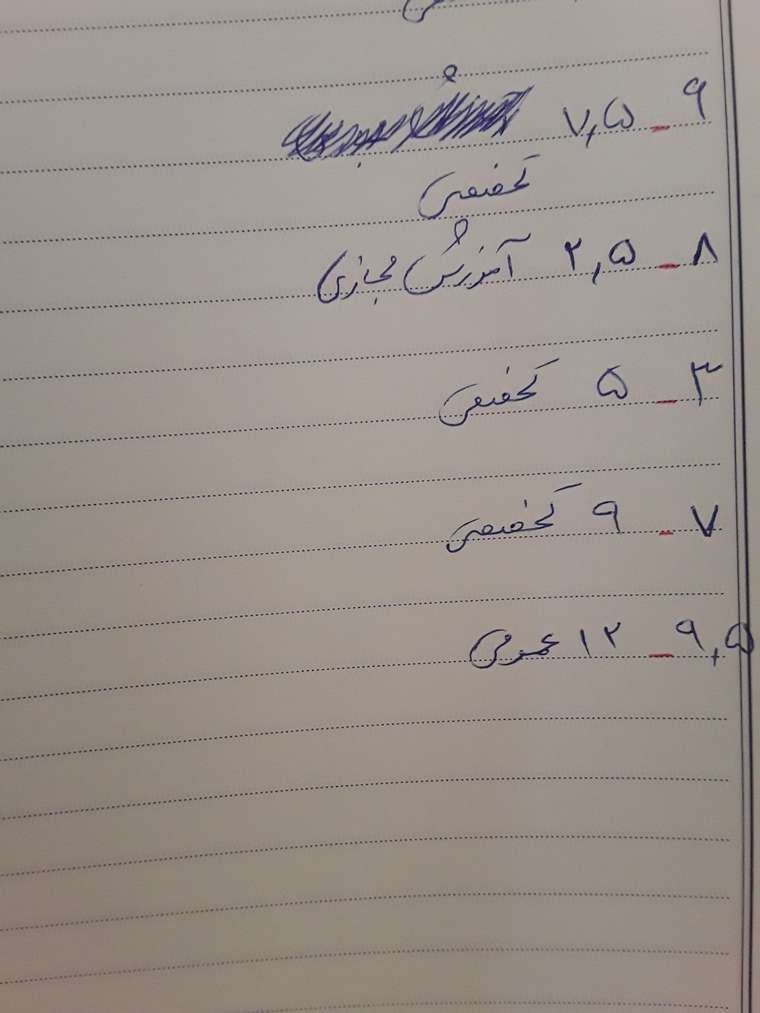 ۹ _ ۷,۵
تخصصی
۸ _ ۲,۵ آموزش مجازی
۳ _ ۵ تخصصی
۷ _ ۹ تخصصی
۹,۵ _ ۱۲ عمومی